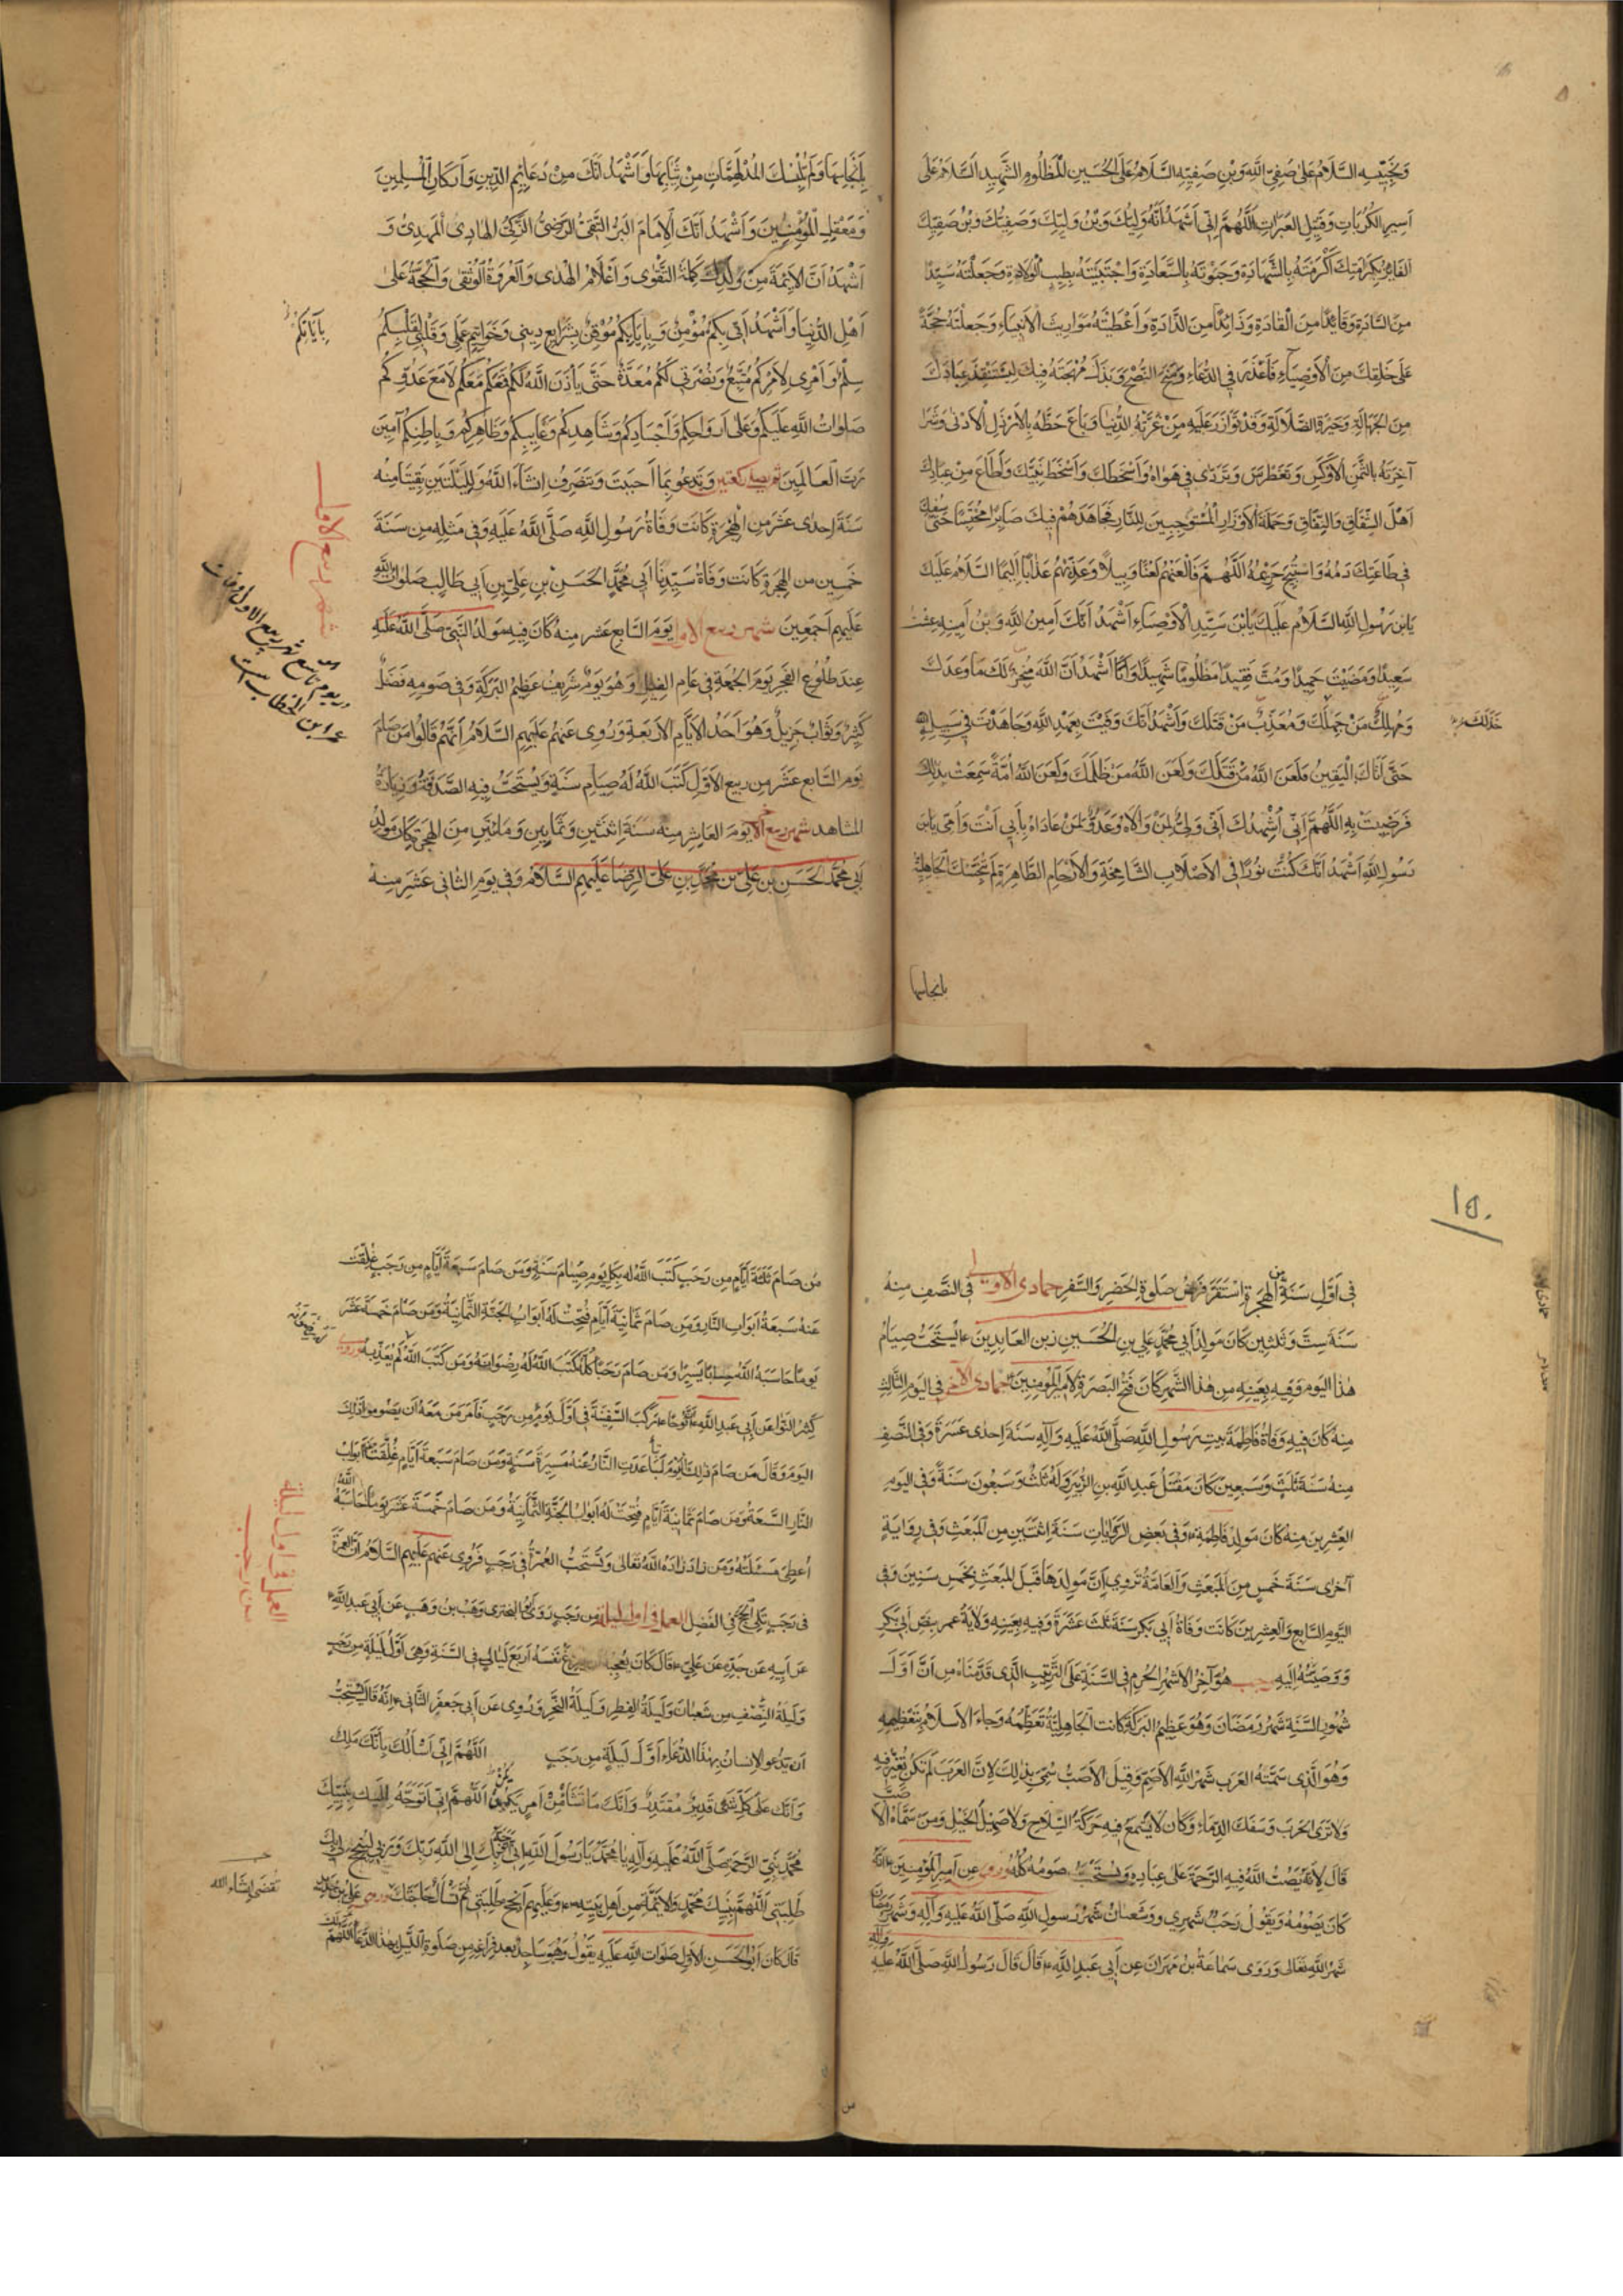 وَنَجِيبِهِ السَّلَامُ عَلَى صَفِيِّ اللَّهِ وَابْنِ صَفِيِّهِ السَّلَامُ عَلَى الْحُسَيْنِ الْمَظْلُومِ الشَّهِيدِ السَّلَامُ عَلَى
أَسِيرِ الْكُرُبَاتِ وَقَتِيلِ الْعَبَرَاتِ اللَّهُمَّ إِنِّي أَشْهَدُ أَنَّهُ وَلِيُّكَ وَابْنُ وَلِيِّكَ وَصَفِيُّكَ وَابْنُ صَفِيِّكَ
الْفَائِزُ بِكَرَامَتِكَ أَكْرَمْتَهُ بِالشَّهَادَةِ وَحَبَوْتَهُ بِالسَّعَادَةِ وَاجْتَبَيْتَهُ بِطِيبِ الْوِلَادَةِ وَجَعَلْتَهُ سَيِّدًا
مِنَ السَّادَةِ وَقَائِدًا مِنَ الْقَادَةِ وَذَائِدًا مِنَ الذَّادَةِ وَأَعْطَيْتَهُ مَوَارِيثَ الْأَنْبِيَاءِ وَجَعَلْتَهُ حُجَّةً
عَلَى خَلْقِكَ مِنَ الْأَوْصِيَاءِ فَأَعْذَرَ فِي الدُّعَاءِ وَمَنَحَ النُّصْحَ وَبَذَلَ مُهْجَتَهُ فِيكَ لِيَسْتَنْقِذَ عِبَادَكَ
مِنَ الْجَهَالَةِ وَحَيْرَةِ الضَّلَالَةِ وَقَدْ تَوَازَرَ عَلَيْهِ مَنْ غَرَّتْهُ الدُّنْيَا وَبَاعَ حَظَّهُ بِالْأَرْذَلِ الْأَدْنَى وَشَرَا
آخِرَتَهُ بِالثَّمَنِ الْأَوْكَسِ وَتَغَطْرَسَ وَتَرَدَّى فِي هَوَاهُ وَأَسْخَطَكَ وَأَسْخَطَ نَبِيَّكَ وَأَطَاعَ مِنْ عِبَادِكَ
أَهْلَ الشِّقَاقِ وَالنِّفَاقِ وَحَمَلَةَ الْأَوْزَارِ الْمُسْتَوْجِبِينَ لِلنَّارِ فَجَاهَدَهُمْ فِيكَ صَابِرًا مُحْتَسِبًا حَتَّى سُفِكَ
فِي طَاعَتِكَ دَمُهُ وَاسْتُبِيحَ حَرِيمُهُ اللَّهُمَّ فَالْعَنْهُمْ لَعْنًا وَبِيلًا وَعَذِّبْهُمْ عَذَابًا أَلِيمًا السَّلَامُ عَلَيْكَ
يَابْنَ رَسُولِ اللَّهِ السَّلَامُ عَلَيْكَ يَابْنَ سَيِّدِ الْأَوْصِيَاءِ أَشْهَدُ أَنَّكَ أَمِينُ اللَّهِ وَابْنُ أَمِينِهِ عِشْتَ
سَعِيدًا وَمَضَيْتَ حَمِيدًا وَمُتَّ فَقِيدًا مَظْلُومًا شَهِيدًا وَأَشْهَدُ أَنَّ اللَّهَ مُنْجِزٌ لَكَ مَا وَعَدَكَ
وَمُهْلِكٌ مَنْ خَذَلَكَ وَمُعَذِّبٌ مَنْ قَتَلَكَ وَأَشْهَدُ أَنَّكَ وَفَيْتَ بِعَهْدِ اللَّهِ وَجَاهَدْتَ فِي سَبِيلِهِ
خَذَلَكَ
حَتَّى أَتَاكَ الْيَقِينُ فَلَعَنَ اللَّهُ مَنْ قَتَلَكَ وَلَعَنَ اللَّهُ مَنْ ظَلَمَكَ وَلَعَنَ اللَّهُ أُمَّةً سَمِعَتْ بِذَلِكَ
فَرَضِيَتْ بِهِ اللَّهُمَّ إِنِّي أُشْهِدُكَ أَنِّي وَلِيٌّ لِمَنْ وَالَاهُ وَعَدُوٌّ لِمَنْ عَادَاهُ بِأَبِي أَنْتَ وَأُمِّي يَابْنَ
رَسُولِ اللَّهِ أَشْهَدُ أَنَّكَ كُنْتَ نُورًا فِي الْأَصْلَابِ الشَّامِخَةِ وَالْأَرْحَامِ الطَّاهِرَةِ لَمْ تُنَجِّسْكَ الْجَاهِلِيَّةُ
بانجاسها
بِأَنْجَاسِهَا وَلَمْ تُلْبِسْكَ الْمُدْلَهِمَّاتُ مِنْ ثِيَابِهَا وَأَشْهَدُ أَنَّكَ مِنْ دَعَائِمِ الدِّينِ وَأَرْكَانِ الْمُسْلِمِينَ
وَمَعْقِلِ الْمُؤْمِنِينَ وَأَشْهَدُ أَنَّكَ الْإِمَامُ الْبَرُّ التَّقِيُّ الرَّضِيُّ الزَّكِيُّ الْهَادِي الْمَهْدِيُّ وَ
أَشْهَدُ أَنَّ الْأَئِمَّةَ مِنْ وُلْدِكَ كَلِمَةُ التَّقْوَى وَأَعْلَامُ الْهُدَى وَالْعُرْوَةُ الْوُثْقَى وَالْحُجَّةُ عَلَى
أَهْلِ الدُّنْيَا وَأَشْهَدُ أَنِّي بِكُمْ مُؤْمِنٌ وَبِإِيَابِكُمْ مُوقِنٌ بِشَرَائِعِ دِينِي وَخَوَاتِيمِ عَمَلِي وَقَلْبِي لِقَلْبِكُمْ
سِلْمٌ وَأَمْرِي لِأَمْرِكُمْ مُتَّبِعٌ وَنُصْرَتِي لَكُمْ مُعَدَّةٌ حَتَّى يَأْذَنَ اللَّهُ لَكُمْ فَمَعَكُمْ مَعَكُمْ لَا مَعَ عَدُوِّكُمْ
صَلَوَاتُ اللَّهِ عَلَيْكُمْ وَعَلَى أَرْوَاحِكُمْ وَأَجْسَادِكُمْ وَشَاهِدِكُمْ وَغَائِبِكُمْ وَظَاهِرِكُمْ وَبَاطِنِكُمْ آمِينَ
رَبَّ الْعَالَمِينَ ثم يصلى ركعتين وَتَدْعُو بِمَا أَحْبَبْتَ وَتَنْصَرِفُ إِنْ شَاءَ اللَّهُ وَلِلَيْلَتَيْنِ بَقِيَتَا مِنْهُ
سَنَةَ إِحْدَى عَشَرَ مِنَ الْهِجْرَةِ كَانَتْ وَفَاةُ رَسُولِ اللَّهِ صَلَّى اللَّهُ عَلَيْهِ وَفِي مِثْلِهِ مِنْ سَنَةَ
خَمْسِينَ مِنَ الْهِجْرَةِ كَانَتْ وَفَاةُ سَيِّدِنَا أَبِي مُحَمَّدٍ الْحَسَنِ بْنِ عَلِيِّ بْنِ أَبِي طَالِبٍ صَلَوَاتُ اللَّهِ
عَلَيْهِمْ أَجْمَعِينَ شهر ربيع الاول يَوْمَ السَّابِعَ عَشَرَ مِنْهُ كَانَ فِيهِ مَوْلِدُ النَّبِيِّ صَلَّى اللَّهُ عَلَيْهِ
عِنْدَ طُلُوعِ الْفَجْرِ يَوْمَ الْجُمْعَةِ فِي عَامِ الْفِيلِ وَهُوَ يَوْمٌ شَرِيفٌ عَظِيمُ الْبَرَكَةِ وَفِي صَوْمِهِ فَضْلٌ
كَثِيرٌ وَثَوَابٌ جَزِيلٌ وَهُوَ أَحَدُ الْأَيَّامِ الْأَرْبَعَةِ وَرُوِيَ عَنْهُمْ عَلَيْهِمُ السَّلَامُ أَنَّهُمْ قَالُوا مَنْ صَامَ
يَوْمَ السَّابِعَ عَشَرَ مِنْ رَبِيعِ الْأَوَّلِ كَتَبَ اللَّهُ لَهُ صِيَامَ سَنَةٍ وَيُسْتَحَبُّ فِيهِ الصَّدَقَةُ وَزِيَارَةُ
الْمَشَاهِدِ شهر ربيع الآخر يَوْمَ الْعَاشِرِ مِنْهُ سَنَةَ اثْنَتَيْنِ وَثَمَانِينَ وَمِائَتَيْنِ مِنَ الْهِجْرَةِ كَانَ مَوْلِدُ
أَبِي مُحَمَّدٍ الْحَسَنِ بْنِ عَلِيِّ بْنِ مُحَمَّدِ بْنِ عَلِيٍّ الرِّضَا عَلَيْهِمُ السَّلَامُ وَفِي يَوْمِ الثَّانِي عَشَرَ مِنْهُ
شهر ربيع الاول
در يوم تاسع شهر ربيع الاول وفات
عمر ابن الخطاب است
١٥٠
فِي أَوَّلِ سَنَةٍ مِنَ الْهِجْرَةِ اسْتَقَرَّ فَرْضُ صَلَوةِ الْحَضَرِ وَالسَّفَرِ جمادى الاولى فِي النِّصْفِ مِنْهُ
سَنَةَ سِتٍّ وَثَلثِينَ كَانَ مَوْلِدُ أَبِي مُحَمَّدٍ عَلِيِّ بْنِ الْحُسَيْنِ زَيْنِ الْعَابِدِينَ ع يُسْتَحَبُّ صِيَامُ
هٰذَا الْيَوْمِ وَفِيهِ بِعَيْنِهِ مِنْ هٰذَا الشَّهْرِ كَانَ فَتْحُ الْبَصْرَةِ لِأَمِيرِ الْمُؤْمِنِينَ ع جمادى الآخر فِي الْيَوْمِ الثَّالِثِ
مِنْهُ كَانَ فِيهِ وَفَاةُ فَاطِمَةَ بِنْتِ رَسُولِ اللَّهِ صَلَّى اللَّهُ عَلَيْهِ وَآلِهِ سَنَةَ إِحْدَى عَشَرَةَ وَفِي النِّصْفِ
مِنْهُ سَنَةَ ثَلَثٍ وَسَبْعِينَ كَانَ مَقْتَلُ عَبْدِ اللَّهِ بْنِ الزُّبَيْرِ وَلَهُ ثَلَثٌ وَسَبْعُونَ سَنَةً وَفِي الْيَوْمِ
الْعِشْرِينَ مِنْهُ كَانَ مَوْلِدُ فَاطِمَةَ ع وَفِي بَعْضِ الرِّوَايَاتِ سَنَةَ اثْنَتَيْنِ مِنَ الْمَبْعَثِ وَفِي رِوَايَةٍ
أُخْرَى سَنَةَ خَمْسٍ مِنَ الْمَبْعَثِ وَالْعَامَّةُ تَرْوِي أَنَّ مَوْلِدَهَا قَبْلَ الْمَبْعَثِ بِخَمْسِ سِنِينَ وَفِي
الْيَوْمِ السَّابِعِ وَالْعِشْرِينَ كَانَتْ وَفَاةُ أَبِي بَكْرٍ سَنَةَ ثَلَثَ عَشَرَةَ وَفِيهِ بِعَيْنِهِ وِلَايَةُ عُمَرَ بِنَصِّ أَبِي بَكْرٍ
وَوَصِيَّتِهِ إِلَيْهِ رجب هُوَ آخِرُ الْأَشْهُرِ الْحُرُمِ فِي السَّنَةِ عَلَى التَّرْتِيبِ الَّذِي قَدَّمْنَاهُ مِنْ أَنَّ أَوَّلَ
شُهُورِ السَّنَةِ شَهْرُ رَمَضَانَ وَهُوَ عَظِيمُ الْبَرَكَةِ كَانَتِ الْجَاهِلِيَّةُ تُعَظِّمُهُ وَجَاءَ الْإِسْلَامُ بِتَعْظِيمِهِ
وَهُوَ الَّذِي سَمَّتْهُ الْعَرَبُ شَهْرَ اللَّهِ الْأَصَمَّ وَقِيلَ الْأَصَبُّ سُمِّيَ بِذَلِكَ لِأَنَّ الْعَرَبَ لَمْ تَكُنْ تُغِيرُ فِيهِ
وَلَا تَرَى الْحَرْبَ وَسَفْكَ الدِّمَاءِ وَكَانَ لَا يُسْمَعُ فِيهِ حَرَكَةُ السِّلَاحِ وَلَا صَهِيلُ الْخَيْلِ وَمَنْ سَمَّاهُ الْأَصَبَّ
قَالَ لِأَنَّهُ يَصُبُّ اللَّهُ فِيهِ الرَّحْمَةَ عَلَى عِبَادِهِ وَيُسْتَحَبُّ صَوْمُهُ كُلُّهُ وروى عَنْ أَمِيرِ الْمُؤْمِنِينَ ع أَنَّهُ
كَانَ يَصُومُهُ وَيَقُولُ رَجَبٌ شَهْرِي وَشَعْبَانُ شَهْرُ رَسُولِ اللَّهِ صَلَّى اللَّهُ عَلَيْهِ وَآلِهِ وَشَهْرُ رَمَضَانَ
شَهْرُ اللَّهِ تَعَالَى وَرَوَى سَمَاعَةُ بْنُ مِهْرَانَ عَنْ أَبِي عَبْدِ اللَّهِ ع قَالَ قَالَ رَسُولُ اللَّهِ صَلَّى اللَّهُ عَلَيْهِ وَآلِهِ
مَنْ صَامَ ثَلَثَةَ أَيَّامٍ مِنْ رَجَبٍ كَتَبَ اللَّهُ لَهُ بِكُلِّ يَوْمٍ صِيَامَ سَنَةٍ وَمَنْ صَامَ سَبْعَةَ أَيَّامٍ مِنْ رَجَبٍ غُلِّقَتْ
عَنْهُ سَبْعَةُ أَبْوَابِ النَّارِ وَمَنْ صَامَ ثَمَانِيَةَ أَيَّامٍ فُتِحَتْ لَهُ أَبْوَابُ الْجَنَّةِ الثَّمَانِيَةُ وَمَنْ صَامَ خَمْسَةَ عَشَرَ
يَوْمًا حَاسَبَهُ اللَّهُ حِسَابًا يَسِيرًا وَمَنْ صَامَ رَجَبًا كُلَّهُ كَتَبَ اللَّهُ لَهُ رِضْوَانَهُ وَمَنْ كَتَبَ اللَّهُ لَمْ يُعَذِّبْهُ وروى
كَثِيرُ النَّوَّا عَنْ أَبِي عَبْدِ اللَّهِ ع أَنَّ نُوحًا ع رَكِبَ السَّفِينَةَ فِي أَوَّلِ يَوْمٍ مِنْ رَجَبٍ فَأَمَرَ مَنْ مَعَهُ أَنْ يَصُومُوا ذَلِكَ
الْيَوْمَ وَقَالَ مَنْ صَامَ ذَلِكَ الْيَوْمَ تَبَاعَدَتِ النَّارُ عَنْهُ مَسِيرَةَ سَنَةٍ وَمَنْ صَامَ سَبْعَةَ أَيَّامٍ غُلِّقَتْ عَنْهُ أَبْوَابُ
النَّارِ السَّبْعَةُ وَمَنْ صَامَ ثَمَانِيَةَ أَيَّامٍ فُتِحَتْ لَهُ أَبْوَابُ الْجَنَّةِ الثَّمَانِيَةُ وَمَنْ صَامَ خَمْسَةَ عَشَرَ يَوْمًا
أُعْطِيَ مَسْئَلَتَهُ وَمَنْ زَادَ زَادَهُ اللَّهُ تَعَالَى وَتُسْتَحَبُّ الْعُمْرَةُ فِي رَجَبٍ فَرُوِيَ عَنْهُمْ عَلَيْهِمُ السَّلَامُ أَنَّ الْعُمْرَةَ
فِي رَجَبٍ تَلِي الْحَجَّ فِي الْفَضْلِ العمل فى اول ليلة مِنْ رَجَبٍ رَوَى أَبُو الْبَخْتَرِي وَهْبُ بْنُ وَهْبٍ عَنْ أَبِي عَبْدِ اللَّهِ ع
عَنْ أَبِيهِ عَنْ جَدِّهِ عَنْ عَلِيٍّ ع قَالَ كَانَ يُعْجِبُهُ نَفْسَهُ أَرْبَعَ لَيَالِي فِي السَّنَةِ وَهِيَ أَوَّلُ لَيْلَةٍ مِنْ رَجَبٍ
وَلَيْلَةُ النِّصْفِ مِنْ شَعْبَانَ وَلَيْلَةُ الْفِطْرِ وَلَيْلَةُ النَّحْرِ وَرُوِيَ عَنْ أَبِي جَعْفَرٍ الثَّانِي ع أَنَّهُ قَالَ يُسْتَحَبُّ
أَنْ يَدْعُوَ الْإِنْسَانُ بِهٰذَا الدُّعَاءِ أَوَّلَ لَيْلَةٍ مِنْ رَجَبٍ اللَّهُمَّ إِنِّي أَسْأَلُكَ بِأَنَّكَ مَلِكٌ
وَأَنَّكَ عَلَى كُلِّ شَيْءٍ قَدِيرٌ مُقْتَدِرٌ وَأَنَّكَ مَا تَشَاءُ مِنْ أَمْرٍ يَكُونُ اللَّهُمَّ إِنِّي أَتَوَجَّهُ إِلَيْكَ بِنَبِيِّكَ
مُحَمَّدٍ نَبِيِّ الرَّحْمَةِ صَلَّى اللَّهُ عَلَيْهِ وَآلِهِ يَا مُحَمَّدُ يَا رَسُولَ اللَّهِ إِنِّي أَتَوَجَّهُ بِكَ إِلَى اللَّهِ رَبِّكَ وَرَبِّي لِيُنْجِحَ لِي بِكَ
طَلِبَتِي اللَّهُمَّ بِنَبِيِّكَ مُحَمَّدٍ وَالْأَئِمَّةِ مِنْ أَهْلِ بَيْتِهِ وَعَلَيْهِمْ أَنْجِحْ طَلِبَتِي ثُمَّ تَسْأَلُ حَاجَتَكَ وروى عَلِيُّ بْنُ حَدِيدٍ
قَالَ كَانَ أَبُو الْحَسَنِ الْأَوَّلُ صَلَوَاتُ اللَّهِ عَلَيْهِ يَقُولُ وَهُوَ سَاجِدٌ بَعْدَ فَرَاغِهِ مِنْ صَلَوةِ اللَّيْلِ بِهٰذَا الدُّعَا
العمل فى اول ليلة
من رجب
تقضى انشاء الله